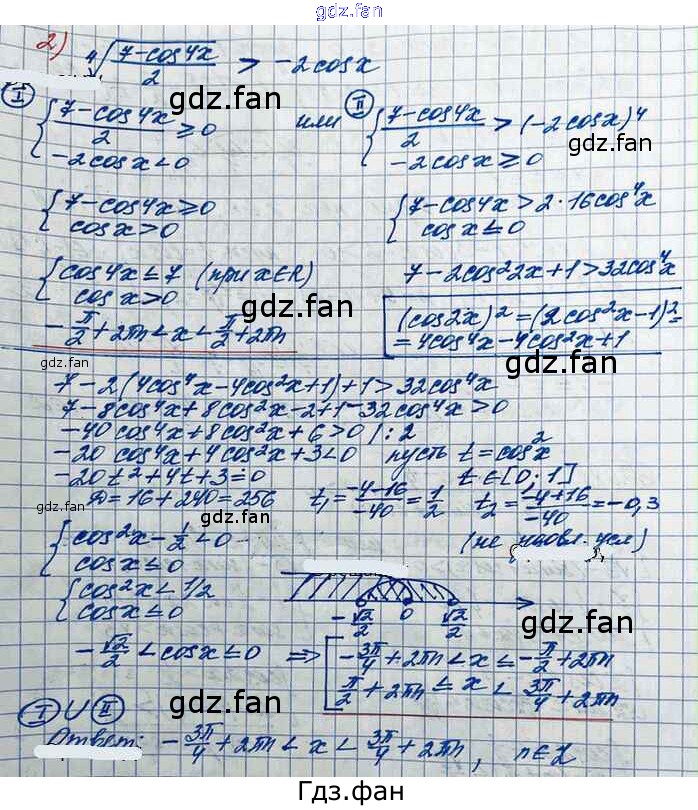 gdz.fan
2) ⁴√((7-cos4x)/2) > -2cosx
I { (7-cos4x)/2 ≥ 0 или II { (7-cos4x)/2 > (-2cosx)⁴
-2cosx < 0 -2cosx ≥ 0
gdz.fan gdz.fan
{ 7-cos4x ≥ 0 { 7-cos4x > 2·16cos⁴x
cosx > 0 cosx ≤ 0
{ cos4x ≤ 7 (при x∈R) 7-2cos²2x+1 > 32cos⁴x
cosx > 0
gdz.fan gdz.fan
-π/2+2πn < x < π/2+2πn (cos2x)² = (2cos²x-1)² =
= 4cos⁴x-4cos²x+1
gdz.fan gdz.fan
7-2(4cos⁴x-4cos²x+1)+1 > 32cos⁴x
7-8cos⁴x+8cos²x-2+1-32cos⁴x > 0
-40cos⁴x+8cos²x+6 > 0 /:2
-20cos⁴x+4cos²x+3 < 0 пусть t = cos²x
-20t²+4t+3=0 t∈[0;1]
gdz.fan gdz.fan
D=16+240=256 t₁ = (-4-16)/-40 = 1/2 t₂ = (-4+16)/-40 = -0,3
{ cos²x - 1/2 < 0 (не удовл. усл)
cosx ≤ 0
{ cos²x < 1/2
cosx ≤ 0
-√2/2 0 √2/2
gdz.fan gdz.fan
-√2/2 < cosx ≤ 0 ⇒ [ -3π/4+2πn < x ≤ -π/2+2πn
π/2+2πn ≤ x < 3π/4+2πn
gdz.fan gdz.fan
I ∪ II
Ответ: -3π/4+2πn < x < 3π/4+2πn, n∈Z
Гдз.фан